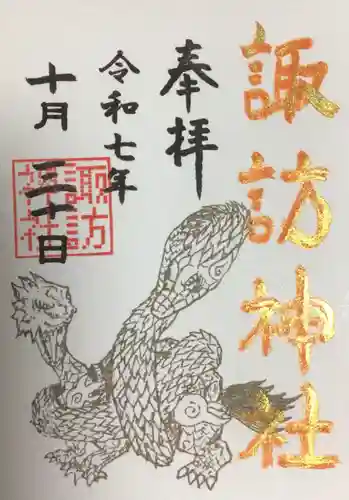 諏訪神社
奉拝
令和七年
十月二十日
諏訪
神社